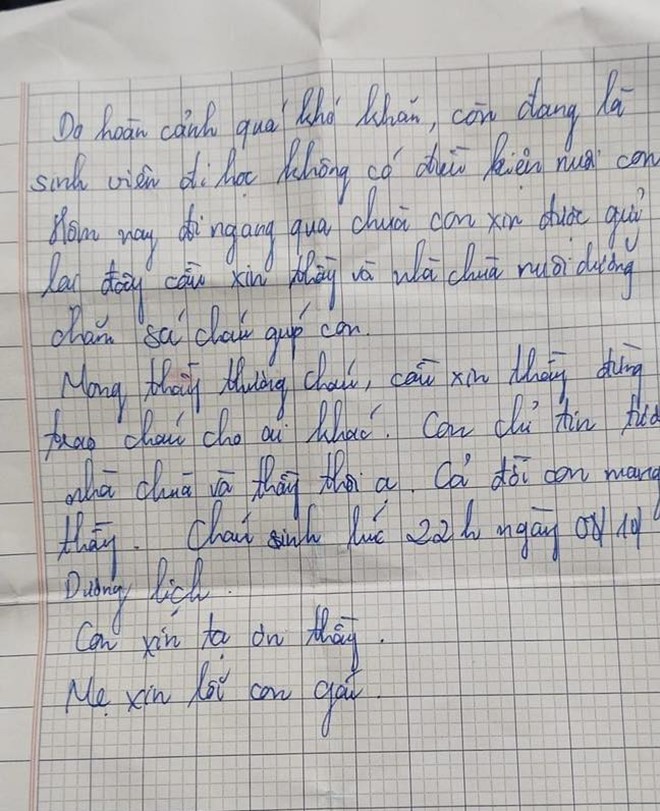 Do hoàn cảnh quá khó khăn, còn đang là
sinh viên đi học không có điều kiện nuôi con
Hôm nay đi ngang qua chùa con xin được gửi
lại đây cầu xin thầy và nhà chùa nuôi dưỡng
chăm sá cháu giúp con.
Mong thầy thương cháu, cầu xin thầy đừng
trao cháu cho ai khác. Con chỉ tin
nhà chùa và thầy thôi ạ. Cả đời con mang
thầy. Cháu sinh lúc 22h ngày
Dương lịch.
Con xin tạ ơn thầy.
Mẹ xin lỗi con gái.